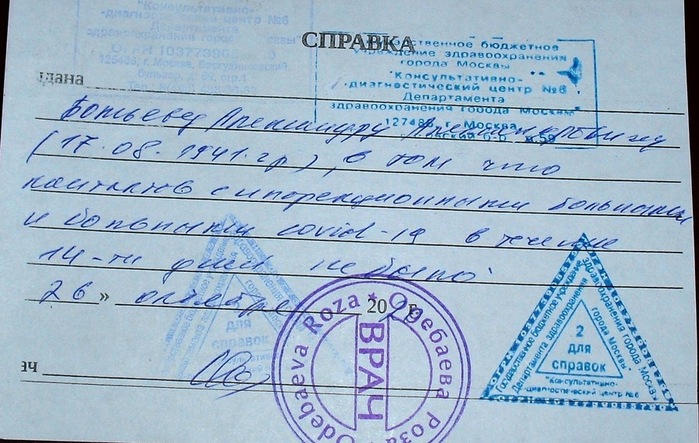 "Консультативно-
-диагностический центр №6
Департамента
здравоохранения города Москвы"
СПРАВКА
бюджетное
учреждение здравоохранения
города Москвы
"Консультативно-
-диагностический центр №6
Департамента
здравоохранения города Москвы"
127486, г. Москва,
дана
Александру
(17.08.1941 г.р.), в том что
контактов с инфекционными больными
и больными covid-19 в течение
14-ти дней не было.
26 » октября 2020 г.
ач
ВРАЧ
Odebaeva Roza ★ Одебаева Роза
для
справок
2
для
справок
Государственное бюджетное учреждение
здравоохранения города Москвы
Департамента здравоохранения
города Москвы
"Консультативно-
-диагностический центр №6